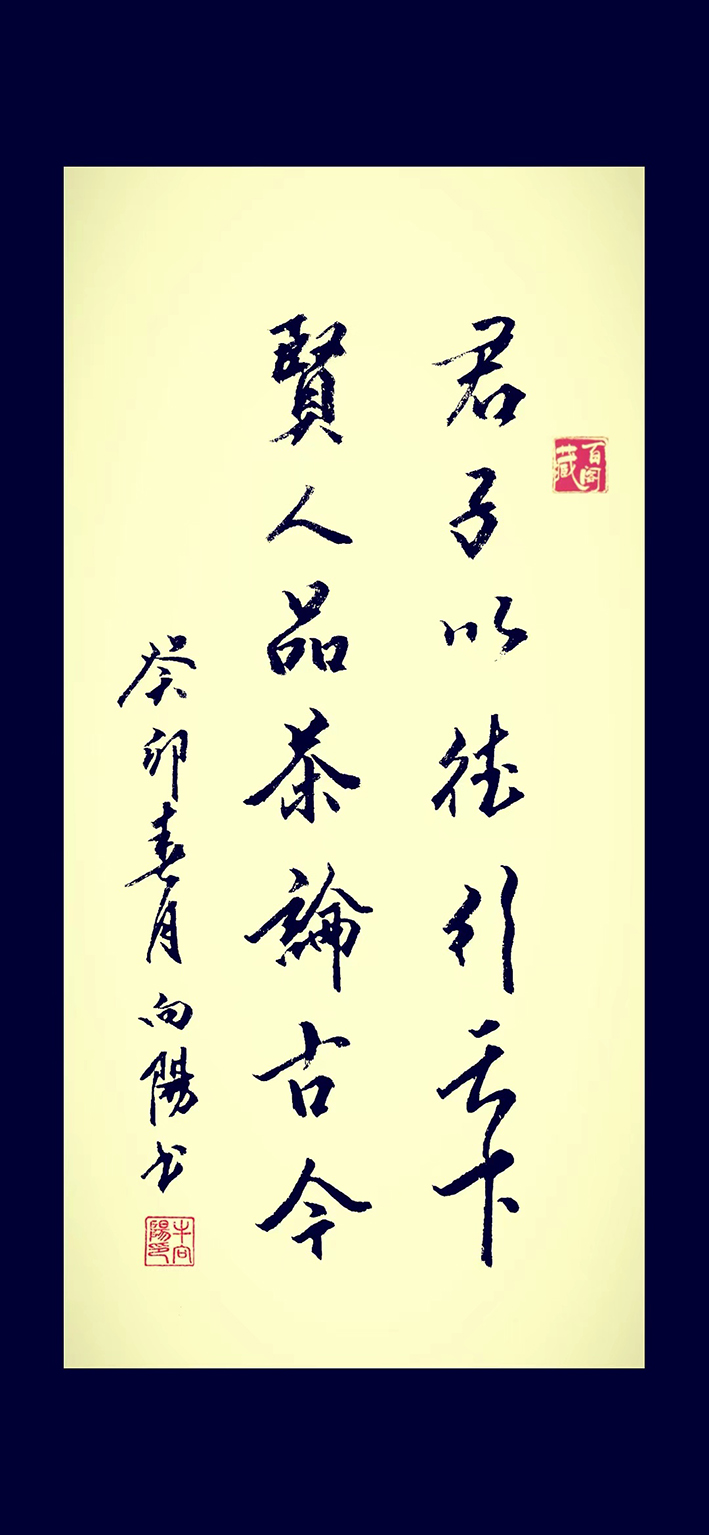 君子以德行天下
賢人品茶論古今
癸卯春月向陽书
牛向陽印